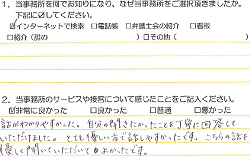 1．当事務所を何でお知りになり、なぜ当事務所をご選択頂きましたか。
下記に記してください。
☑インターネットで検索　□電話帳　□弁護士会の紹介　□看板
□紹介（誰の　　　　　　　）□その他（　　　　　　　）
2．当事務所のサービスや接客について感じたことをご記入ください。
☑非常に良かった　□良かった　□普通　□悪かった
話がわかりやすかった。自分の聞きたかったことを丁寧に回答して
いただけました。とても優しい方で話しやすかったです。こちらの話を
優しく聞いていただいて よかったです。